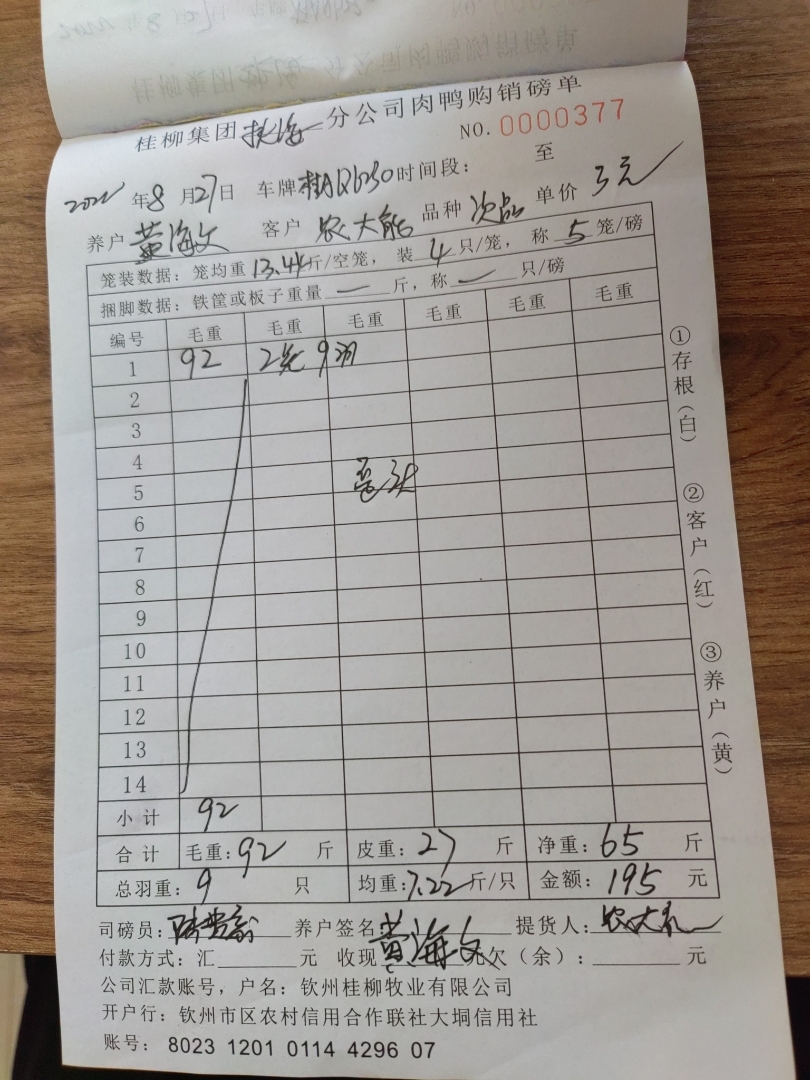 桂柳集团 分公司肉鸭购销磅单
NO. 0000377
2022年8月27日 车牌 时间段: 至
养户 黄海文 客户 农大能 品种 次品 单价 3元
笼装数据:笼均重13.44斤/空笼,装4只/笼,称5笼/磅
捆脚数据:铁筐或板子重量一斤,称一只/磅
编号 毛重 毛重 毛重 毛重 毛重 毛重
1 92 2笼 9羽
2
3
4
5
6
7
8
9
10
11
12
13
14
小计 92
合计 毛重:92斤 皮重:27斤 净重:65斤
总羽重:9只 均重:7.22斤/只 金额:195元
司磅员: 养户签名:黄海文 提货人:农大
付款方式:汇 元 收现 元欠(余): 元
公司汇款账号,户名:钦州桂柳牧业有限公司
开户行:钦州市区农村信用合作联社大垌信用社
账号: 8023 1201 0114 4296 07
①存根(白)
②客户(红)
③养户(黄)